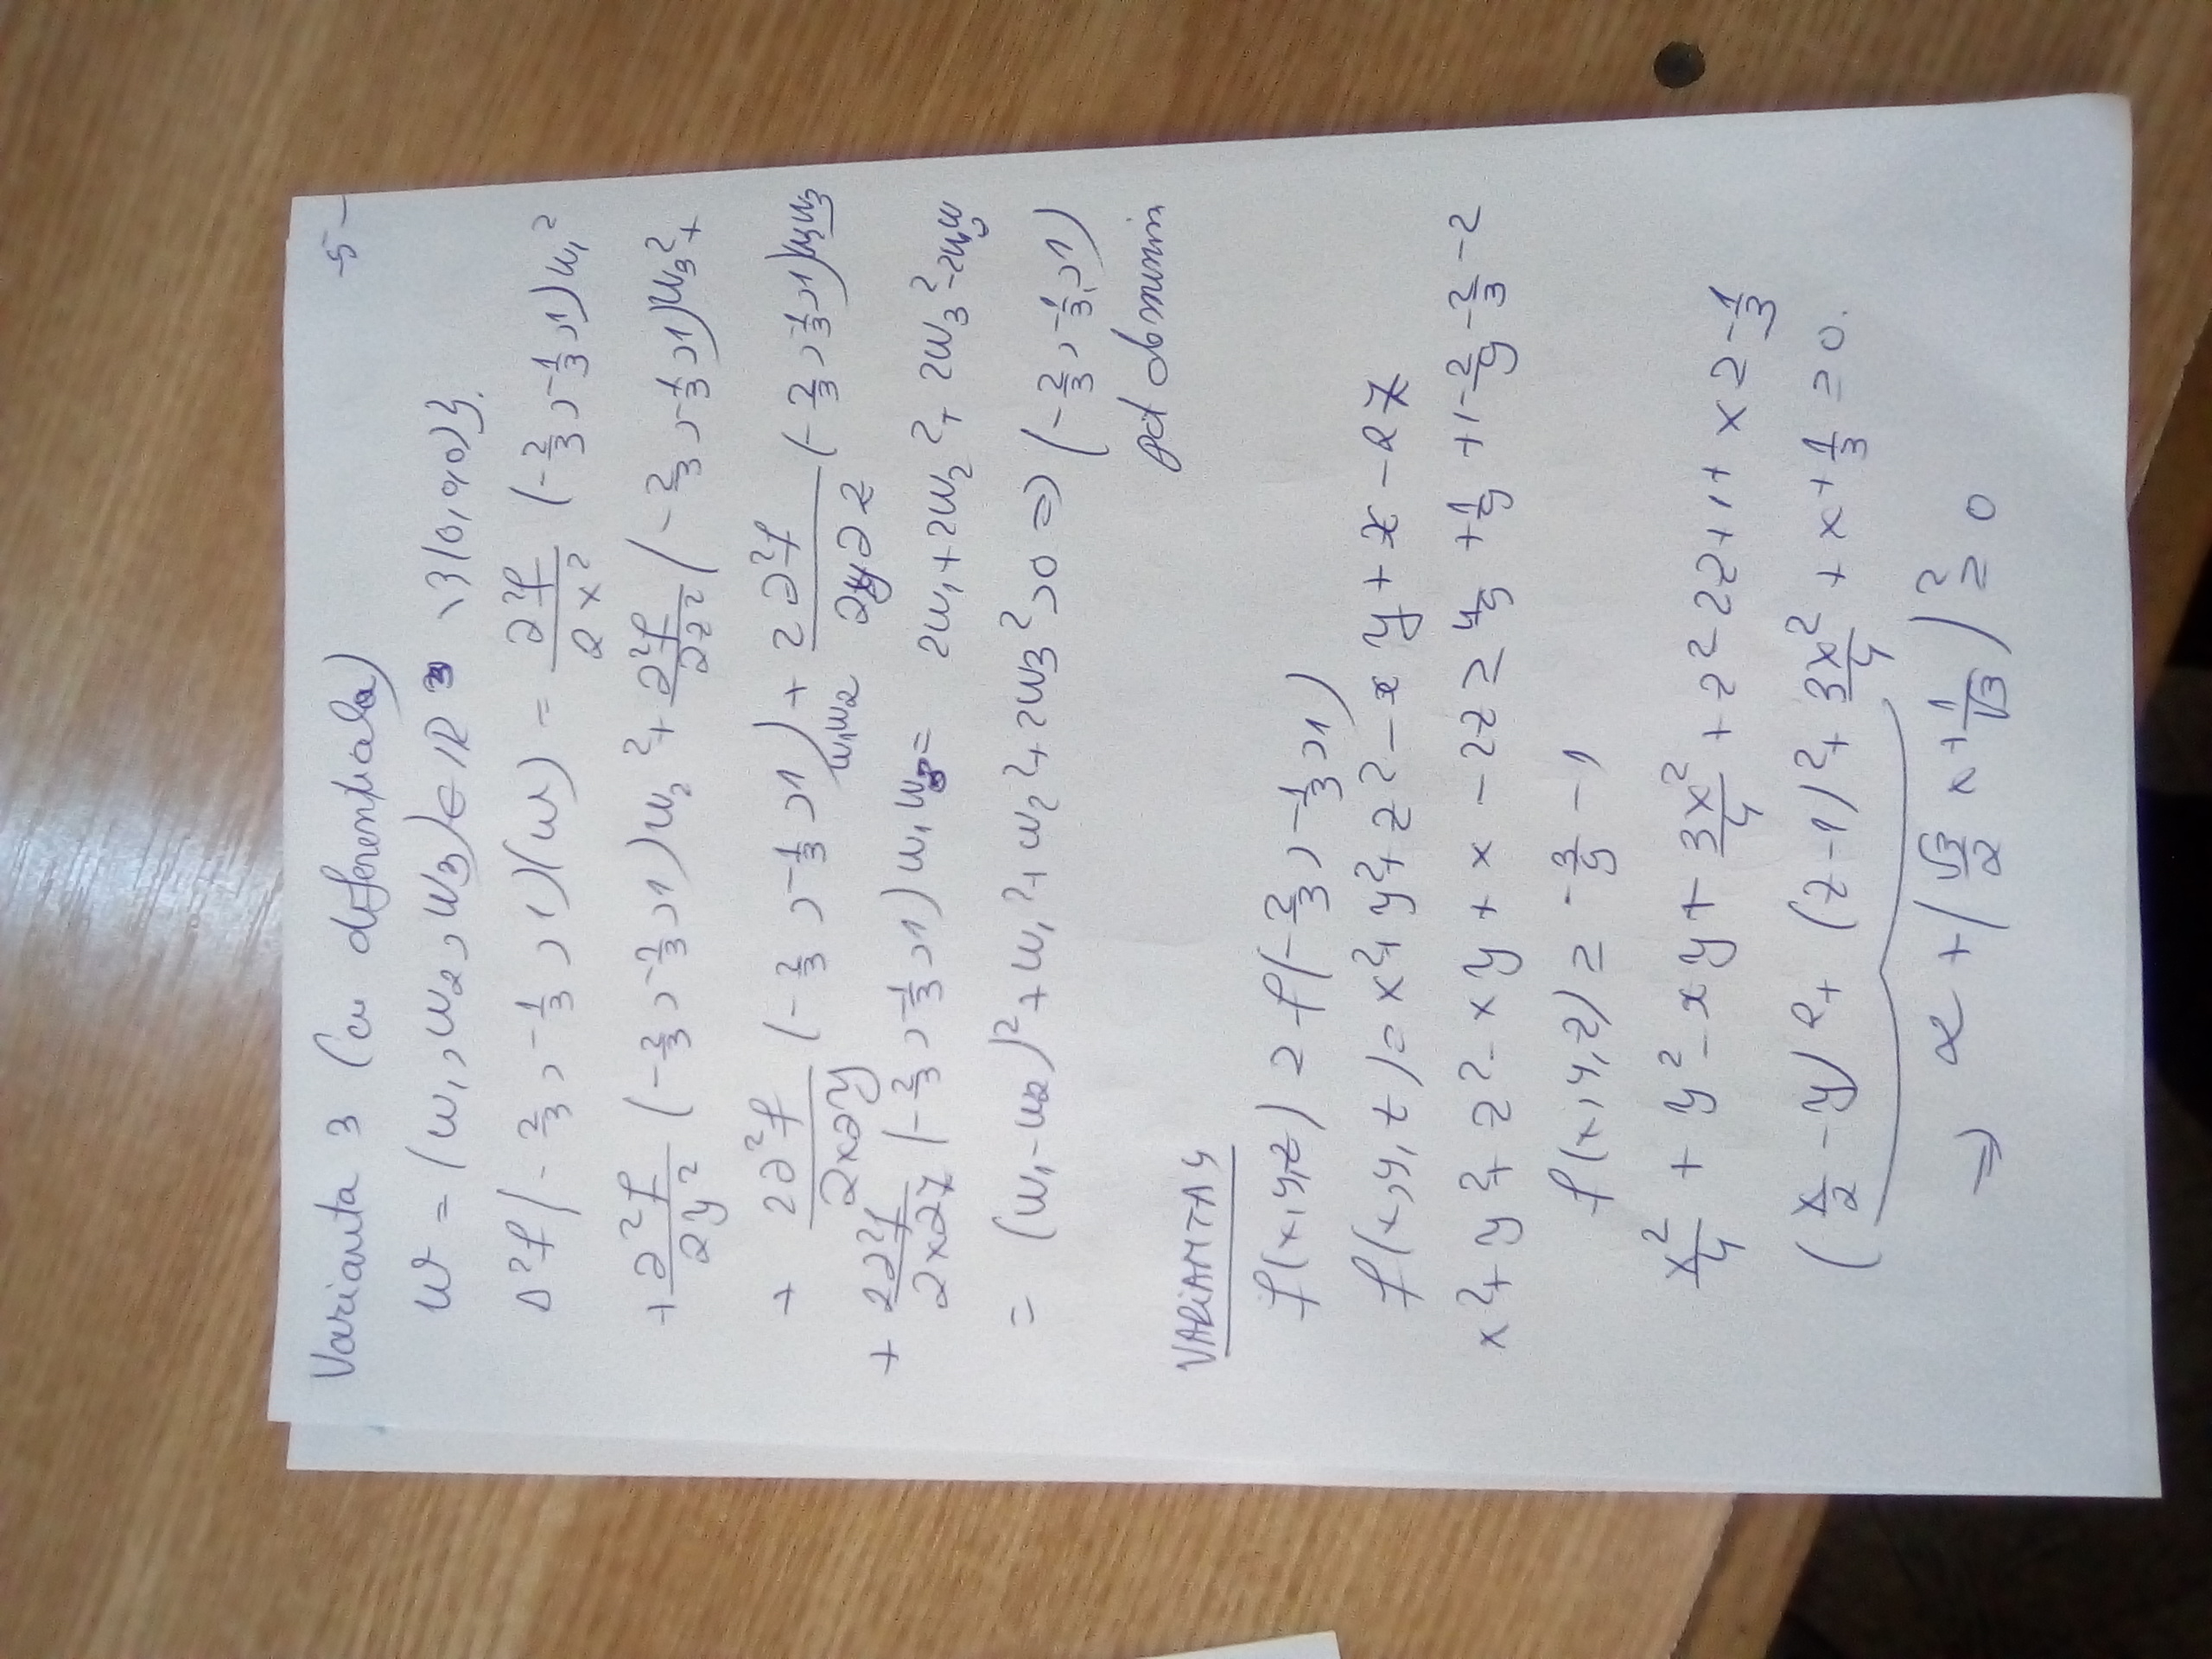 -5-
Varianta 3 (cu diferențiala)
w = (w₁, w₂, w₃) ∈ ℝ³ \ {(0,0,0)}.
D²f(-2/3, -1/3, 1)(w) = ∂²f/∂x² (-2/3, -1/3, 1) w₁²
+ ∂²f/∂y² (-2/3, -2/3, 1) w₂² + ∂²f/∂z² (-2/3, -1/3, 1) w₃² +
+ 2∂²f/∂x∂y (-2/3, -1/3, 1) w₁w₂ + 2∂²f/∂y∂z (-2/3, -1/3, 1) w₂w₃
+ 2∂²f/∂x∂z (-2/3, -1/3, 1) w₁w₃ = 2w₁ + 2w₂² + 2w₃² - 2w₁w₂
= (w₁ - w₂)² + w₁² + w₂² + 2w₃² > 0 ⇒ (-2/3, -1/3, 1)
pct de minim
VARIANTA 4
f(x,y,z) ≥ f(-2/3, -1/3, 1)
f(x,y,z) = x² + y² + z² - xy + x - 2z
x² + y² + z² - xy + x - 2z ≥ 4/9 + 1/9 + 1 - 2/9 - 2/3 - 2
f(x,y,z) ≥ -3/9 - 1
x²/4 + y² - xy + 3x²/4 + z² - 2z + 1 + x ≥ -1/3
(x/2 - y)² + (z-1)² + 3x²/4 + x + 1/3 ≥ 0.
⇒ α + (√3/2 x + 1/√3)² ≥ 0